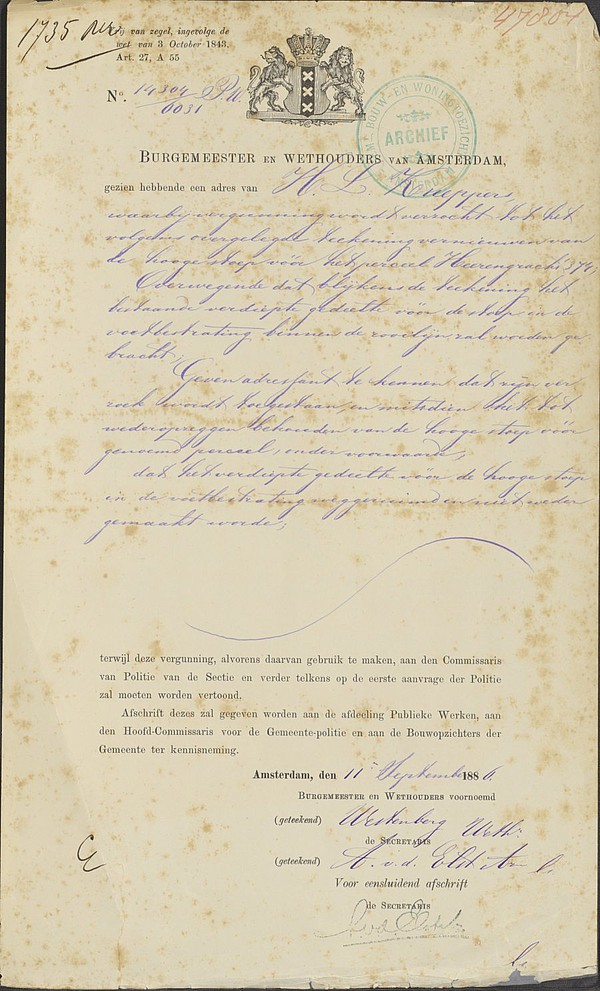 1735
47807
Vrij van zegel, ingevolge de
wet van 3 October 1843,
Art. 27, A 55
No. 14304 P.W.
0031
BOUW- EN WONINGTOEZICHT
ARCHIEF
AMSTERDAM
BURGEMEESTER EN WETHOUDERS VAN AMSTERDAM,
gezien hebbende een adres van H. L. Kuppers
waarbij vergunning wordt verzocht tot het
volgens overgelegde teekening vernieuwen van
de hooge stoep vóór het perceel Heerengracht 374,
Overwegende dat blijkens de teekening het
bestaande verdiepte gedeelte vóór de stoep in de
voetbestrating binnen de rooilijn zal worden ge
bracht,
Geven adressant te kennen dat zijn ver
zoek wordt toegestaan, en mitsdien het tot
wederopzeggen behouden van de hooge stoep vóór
genoemd perceel, onder voorwaarde,
dat het verdiepte gedeelte vóór de hooge stoep
in de voetbestrating weggeruimd en niet weder
gemaakt worde;
terwijl deze vergunning, alvorens daarvan gebruik te maken, aan den Commissaris
van Politie van de Sectie en verder telkens op de eerste aanvrage der Politie
zal moeten worden vertoond.
Afschrift dezes zal gegeven worden aan de afdeeling Publieke Werken, aan
den Hoofd-Commissaris voor de Gemeente-politie en aan de Bouwopzichters der
Gemeente ter kennisneming.
Amsterdam, den 11 September 1886.
BURGEMEESTER EN WETHOUDERS voornoemd
(geteekend) Westenberg Weth.
de SECRETARIS
(geteekend) A. v. d. Elst
Voor eensluidend afschrift
de SECRETARIS